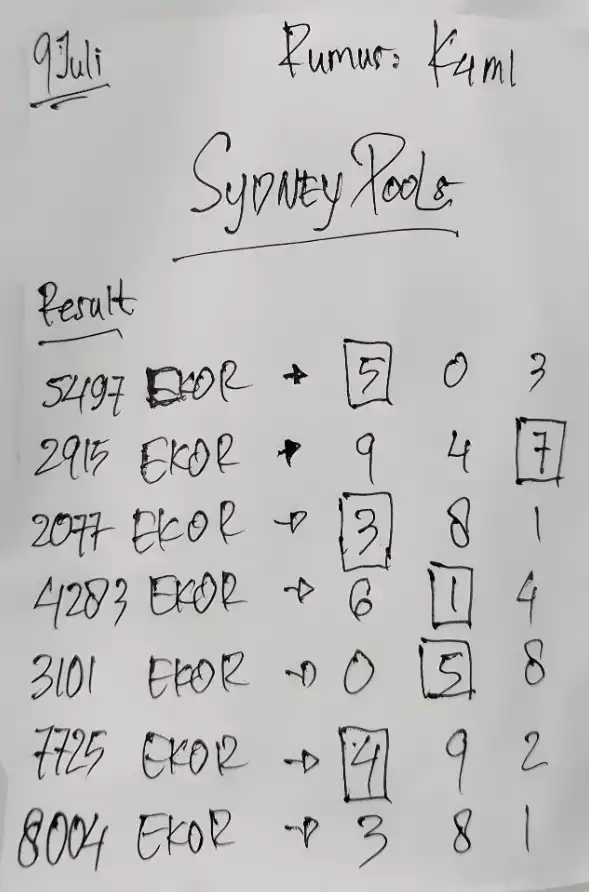 9 Juli Rumus: K4ml
SYDNEY Pools
Result
5497 EKOR → 5 0 3
2915 EKOR → 9 4 7
2077 EKOR → 3 8 1
4283 EKOR → 6 1 4
3101 EKOR → 0 5 8
7725 EKOR → 4 9 2
8004 EKOR → 3 8 1